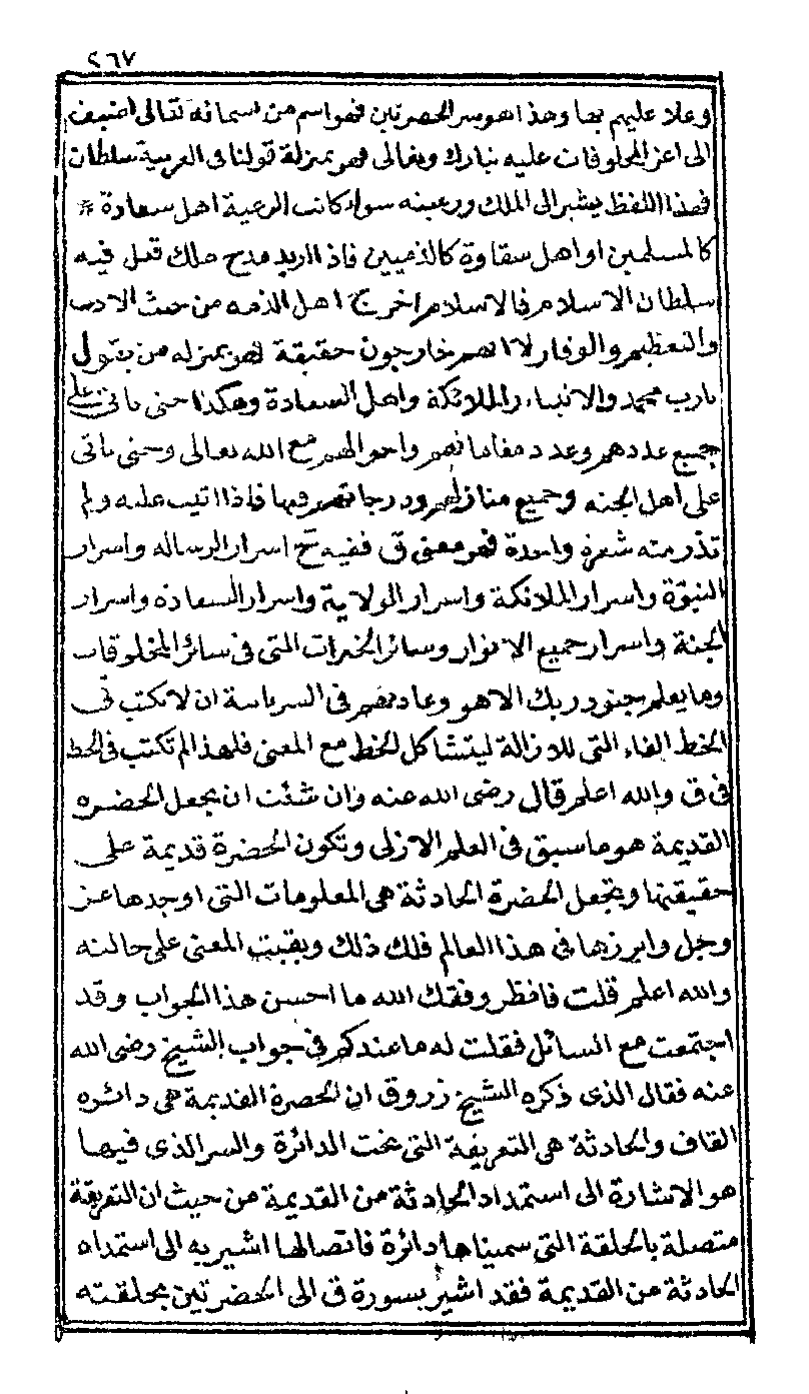 ٢٦٧
وعلا عليهم بها وهذا هو سر الحضرتين فهو اسم من اسمائه تعالى اضيف
الى اعز المخلوقات عليه تبارك وتعالى فهو بمنزلة قولنا فى العربية سلطان
فهذا اللفظ يشير الى الملك ورعيته سواء كانت الرعية اهل سعادة *
كالمسلمين او اهل شقاوة كالذميين فاذا اريد مدح ملك قيل فيه
سلطان الاسلام فالاسلام اخرج اهل الذمه من حيث الادب
والتعظيم والوقار لا انهم خارجون حقيقة فهو بمنزله من يقول
يارب محمد والانبياء والملائكة واهل السعادة وهكذا حتى ياتى على
جميع عددهم وعدد مقاماتهم واحوالهم مع الله تعالى وحتى ياتى
على اهل الجنه وجميع منازلهم ودرجاتهم فيها فاذا اتيت عليه ولم
تذر منه شعرة واحدة فهو معنى ق ففيه ح اسرار الرساله واسرار
النبوّة واسرار الملائكة واسرار الولاية واسرار السعاده واسرار
الجنة واسرار جميع الانوار وسائر الخيرات التى فى سائر المخلوقات
وما يعلم جنود ربك الا هو وعادتهم فى السريانية ان لا تكتب فى
الخط الفاء التى للازالة ليتشاكل الخط مع المعنى فلهذا لم تكتب فى الخط
فى ق والله اعلم قال رضى الله عنه وان شئت ان تجعل الحضره
القديمة هو ما سبق فى العلم الازلى وتكون الحضرة قديمة على
حقيقتها وتجعل الحضرة الحادثة هى المعلومات التى اوجدها عز
وجل وابرزها فى هذا العالم فلك ذلك وبقيت المعنى على حالته
والله اعلم قلت فانظر وفقك الله ما احسن هذا الجواب وقد
اجتمعت مع السائل فقلت له ما عندكم فى جواب الشيخ رضى الله
عنه فقال الذى ذكره الشيخ زروق ان الحضرة القديمة هى دائره
القاف والحادثة هى التعريقة التى تحت الدائرة والسر الذى فيها
هو الاشارة الى استمداد الحادثة من القديمة من حيث ان التعريقة
متصلة بالحلقة التى سميناها دائرة فاتصالها اشير به الى استمداد
الحادثة من القديمة فقد اشير بسورة ق الى الحضرتين بحلقته